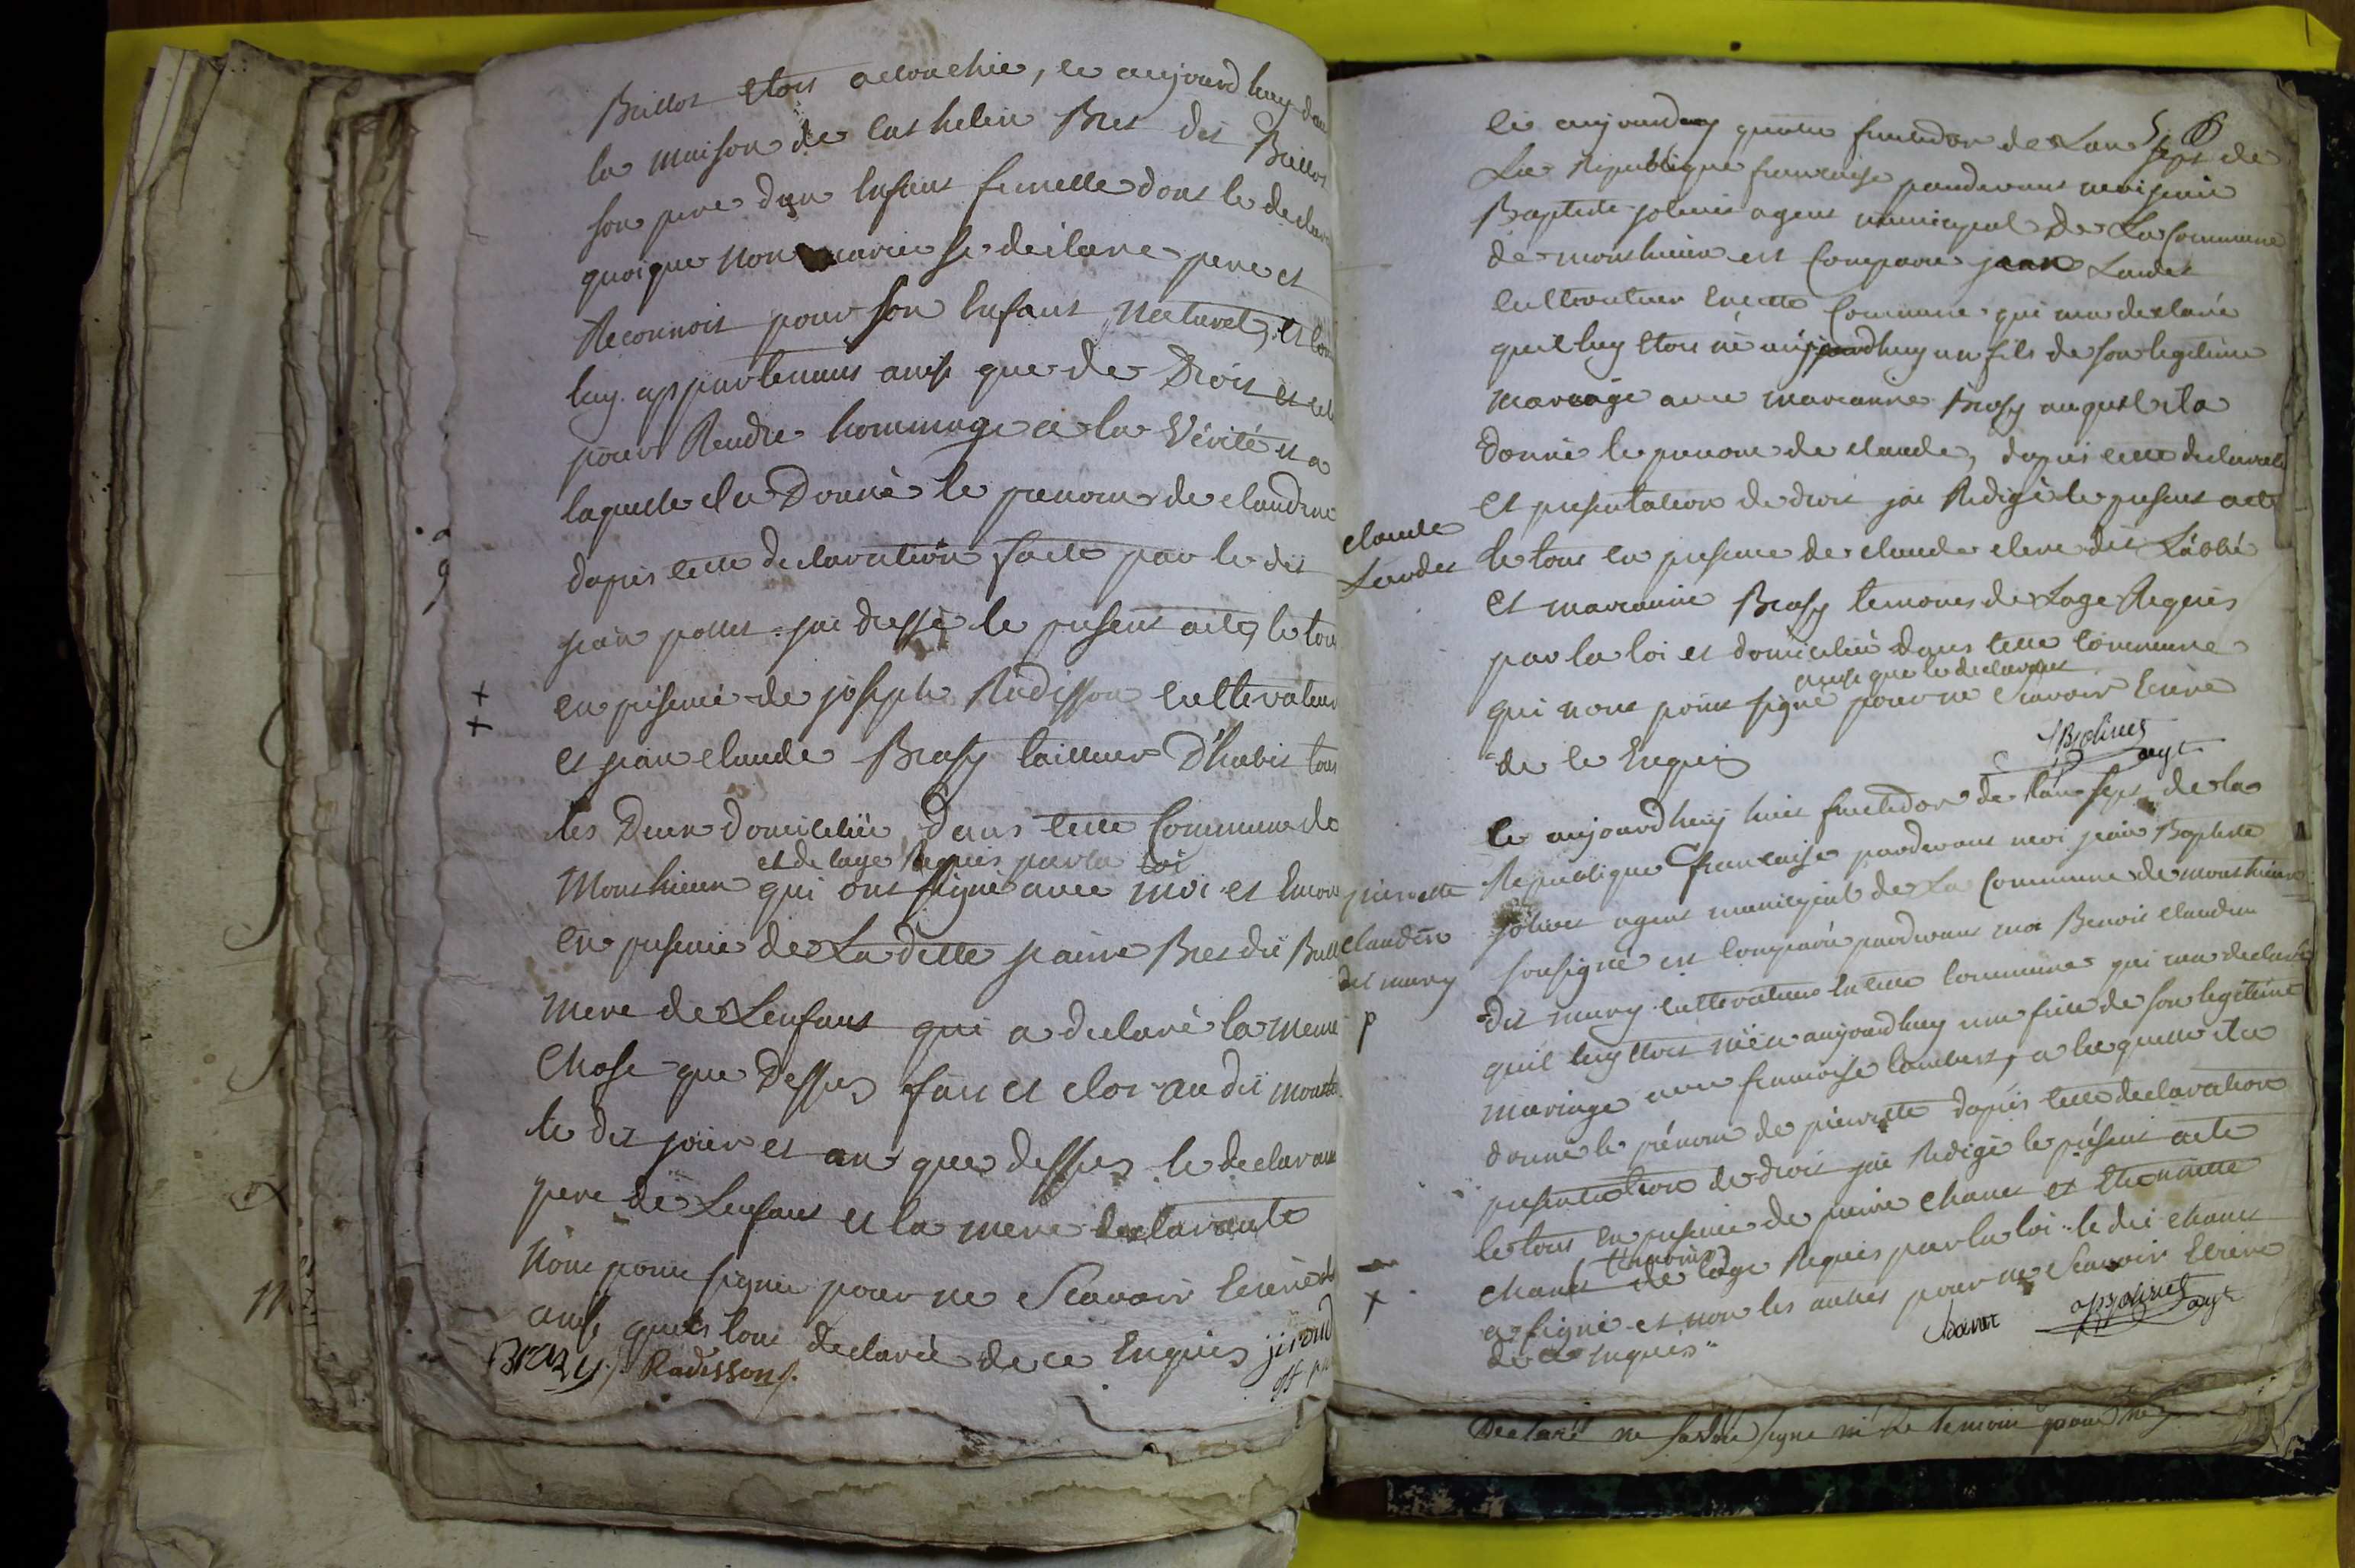 Buillot etois accouchée, ce aujourd huy dan
la maison de Cathelin Bret dit Buillot
son pere d'un Enfant femelle dont le declar
quoique non marié se declare pere et
Reconnoit pour son Enfant Naturel, et
luy appartenant ainsi que de Droit et
pour Rendre hommage a la Vérité et a
laquelle il a Donné le prenom de claudine
dapres cette declaration faite par le dit
jean pollet jai dressé le present acte, le tou
en présence de joseph Radisson cultivateur
et jean claude Brasy tailleur D'habit tous
les Deux domiciliée dans cette Commune de
et de lage Requis par la loi
Monthieux qui ont signé avec moi et Encore
En presence de La ditte jeanne Bret dit Buill
mere de Lenfant qui a declaré la meme
Chose que Dessus fait et clos au dit month
le dit jour et an que dessus le declarant
pere de Lenfant et la mere declarante
Nont point signé pour ne Scavoir Ecrire
ainsi quils lont declaré de ce Enquis
Brazy. Radisson. jiroud
claude
Landet
pierrette
claudin
dit mury
p
ce aujourdhuy quatre fructidor de Lan Sept de
La Republique francaise pardevant moi jean
Baptiste jolivet agent municipal de La Commune
de monthieux est Comparu jean Landet
cultivateur En cette Commune qui ma declaré
quil luy etois né aujourdhuy un fils de son legitime
mariage avec marianne Brasy auquel il a
donné le prenom de claude, dapres cette declarati
et presentation de droit jai Redigé le present acte
le tout en presence de claude clerc dit Labbé
et marianne Brasy temoins de Lage Requis
par la loi et domicilié dans cette commune
ainsi que le declarant
qui nont point signé pour ne Scavoir Ecrire
de ce Enquis
JBJolivet agt
Ce aujourdhuy huit fructidor de lan sept de la
Republique francaise pardevant moi jean Baptiste
jolivet agent municipal de La Commune de monthieux
sousigné est comparu pardevant moi Benoit claudin
dit mury cultivateur en cette commune qui ma declaré
quil luy etois née aujourdhuy une fille de son legitime
mariage avec francoise lambert, a laquelle il a
donné le prénom de pierrette dapres cette declaration
presentation de droit jai Redigé le présent acte
le tout en presence de pierre chanet et Etiennette
temoins
chanet de lage Requis par la loi le dit chanet
a signé et non les autres pour ne Scavoir Ecrire
de ce enquis
chanet JBJolivet agt
Declaré ne savoir signe ni le temoin